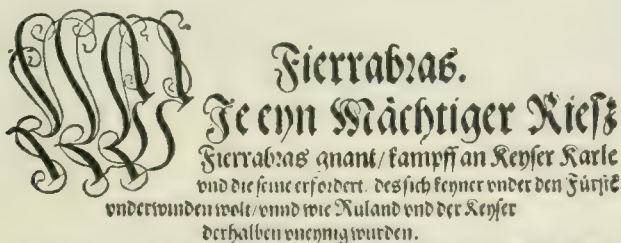 Fierrabras.
WIe eyn Mächtiger Riesz
Fierrabras gnant / kampff an Keyser Karle
vnd die seine erfordert. des sich keyner vnder den Fürstē
vnderwinden wolt / vnnd wie Ruland vnd der Keyser
derhalben vneynig wurden.